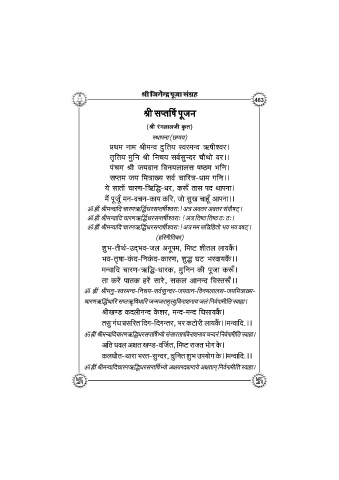 श्री जिनेन्द्र पूजा संग्रह
463
श्री सप्तर्षि पूजन
(श्री रंगलालजी कृत)
स्थापना (छप्पय)
प्रथम नाम श्रीमन्व दुतिय स्वरमन्व ऋषीश्वर।
तृतिय मुनि श्री निचय सर्वसुन्दर चौथो वर।।
पंचम श्री जयवान विनयलालस षष्ठम भनि।
सप्तम जय मित्राख्य सर्व चारित्र-धाम गनि।।
ये सातों चारण-ऋद्धि-धर, करूँ तास पद थापना।
मैं पूजूँ मन-वचन-काय करि, जो सुख चाहूँ आपना।।
ॐ ह्रीं श्रीमन्वादि चारणऋद्धिधरसप्तर्षीश्वराः ! अत्र अवतर अवतर संवौषट्।
ॐ ह्रीं श्रीमन्वादि चारणऋद्धिधरसप्तर्षीश्वराः ! अत्र तिष्ठत तिष्ठत ठः ठः।
ॐ ह्रीं श्रीमन्वादि चारणऋद्धिधरसप्तर्षीश्वराः ! अत्र मम सन्निहितो भव भव वषट्।
(हरिगीतिका)
शुभ-तीर्थ-उद्भव-जल अनूपम, मिष्ट शीतल लायकैं।
भव-तृषा-कंद-निकंद-कारण, शुद्ध घट भरवायकैं।।
मन्वादि चारण-ऋद्धि-धारक, मुनिन की पूजा करूँ।
ता करें पातक हरें सारे, सकल आनन्द विस्तरूँ।।
ॐ ह्रीं श्रीमनु-स्वरमन्व-निचय-सर्वसुन्दर-जयवान-विनयलालस-जयमित्राख्य-
चारणऋद्धिधारि सप्तऋषिभ्यो जन्मजरामृत्युविनाशनाय जलं निर्वपामीति स्वाहा।
श्रीखण्ड कदलीनन्द केशर, मन्द-मन्द घिसायकैं।
तसु गंध प्रसरित दिग-दिगन्तर, भर कटोरी लायकैं।।मन्वादि.।।
ॐ ह्रीं श्रीमन्वादिचारणऋद्धिधरसप्तर्षिभ्यो संसारतापविनाशनाय चन्दनं निर्वपामीति स्वाहा।
अति धवल अक्षत खण्ड-वर्जित, मिष्ट राजत भोग के।
कलधौत-थारा भरत-सुन्दर, चुनित शुभ उपयोग के।।मन्वादि.।।
ॐ ह्रीं श्रीमन्वादिचारणऋद्धिधरसप्तर्षिभ्यो अक्षयपदप्राप्तये अक्षतान् निर्वपामीति स्वाहा।